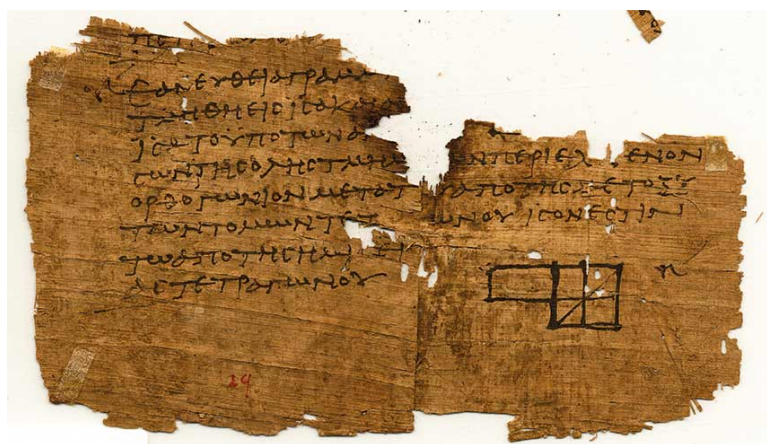 ΕΑΝ ΕΥΘΕΙΑ ΓΡΑΜΜ
ΤΜΗΘΗ ΕΙΣ ΙΣΑ ΚΑΙ Α
ΙΣΑ ΤΟ ΥΠΟ ΤΩΝ ΑΝ
ΣΩΝ ΤΗΣ ΟΛΗΣ ΤΜΗΜ ΩΝ ΠΕΡΙΕΧ ΜΕΝΟΝ
ΟΡΘΟΓΩΝΙΟΝ ΜΕΤΑ Τ Υ ΑΠΟ ΤΗΣ ΜΕΤΟΞΥ
ΤΩΝ ΤΟΜΩΝ ΤΕΤ ΩΝΟΥ ΙΣΟΝ ΕΣΤΙΝ
ΤΩ ΑΠΟ ΤΗΣ ΗΜΙΣΙ
ΑΣ ΤΕΤΡΑΓΩΝΟΥ